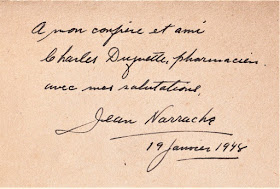 A mon confrère et ami
Charles Duquette, pharmacien.
avec mes salutations,
Jean Narrache
19 janvier 1948